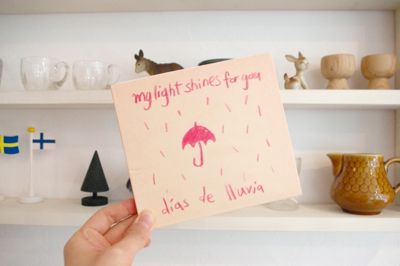 my light shines for you
días de lluvia